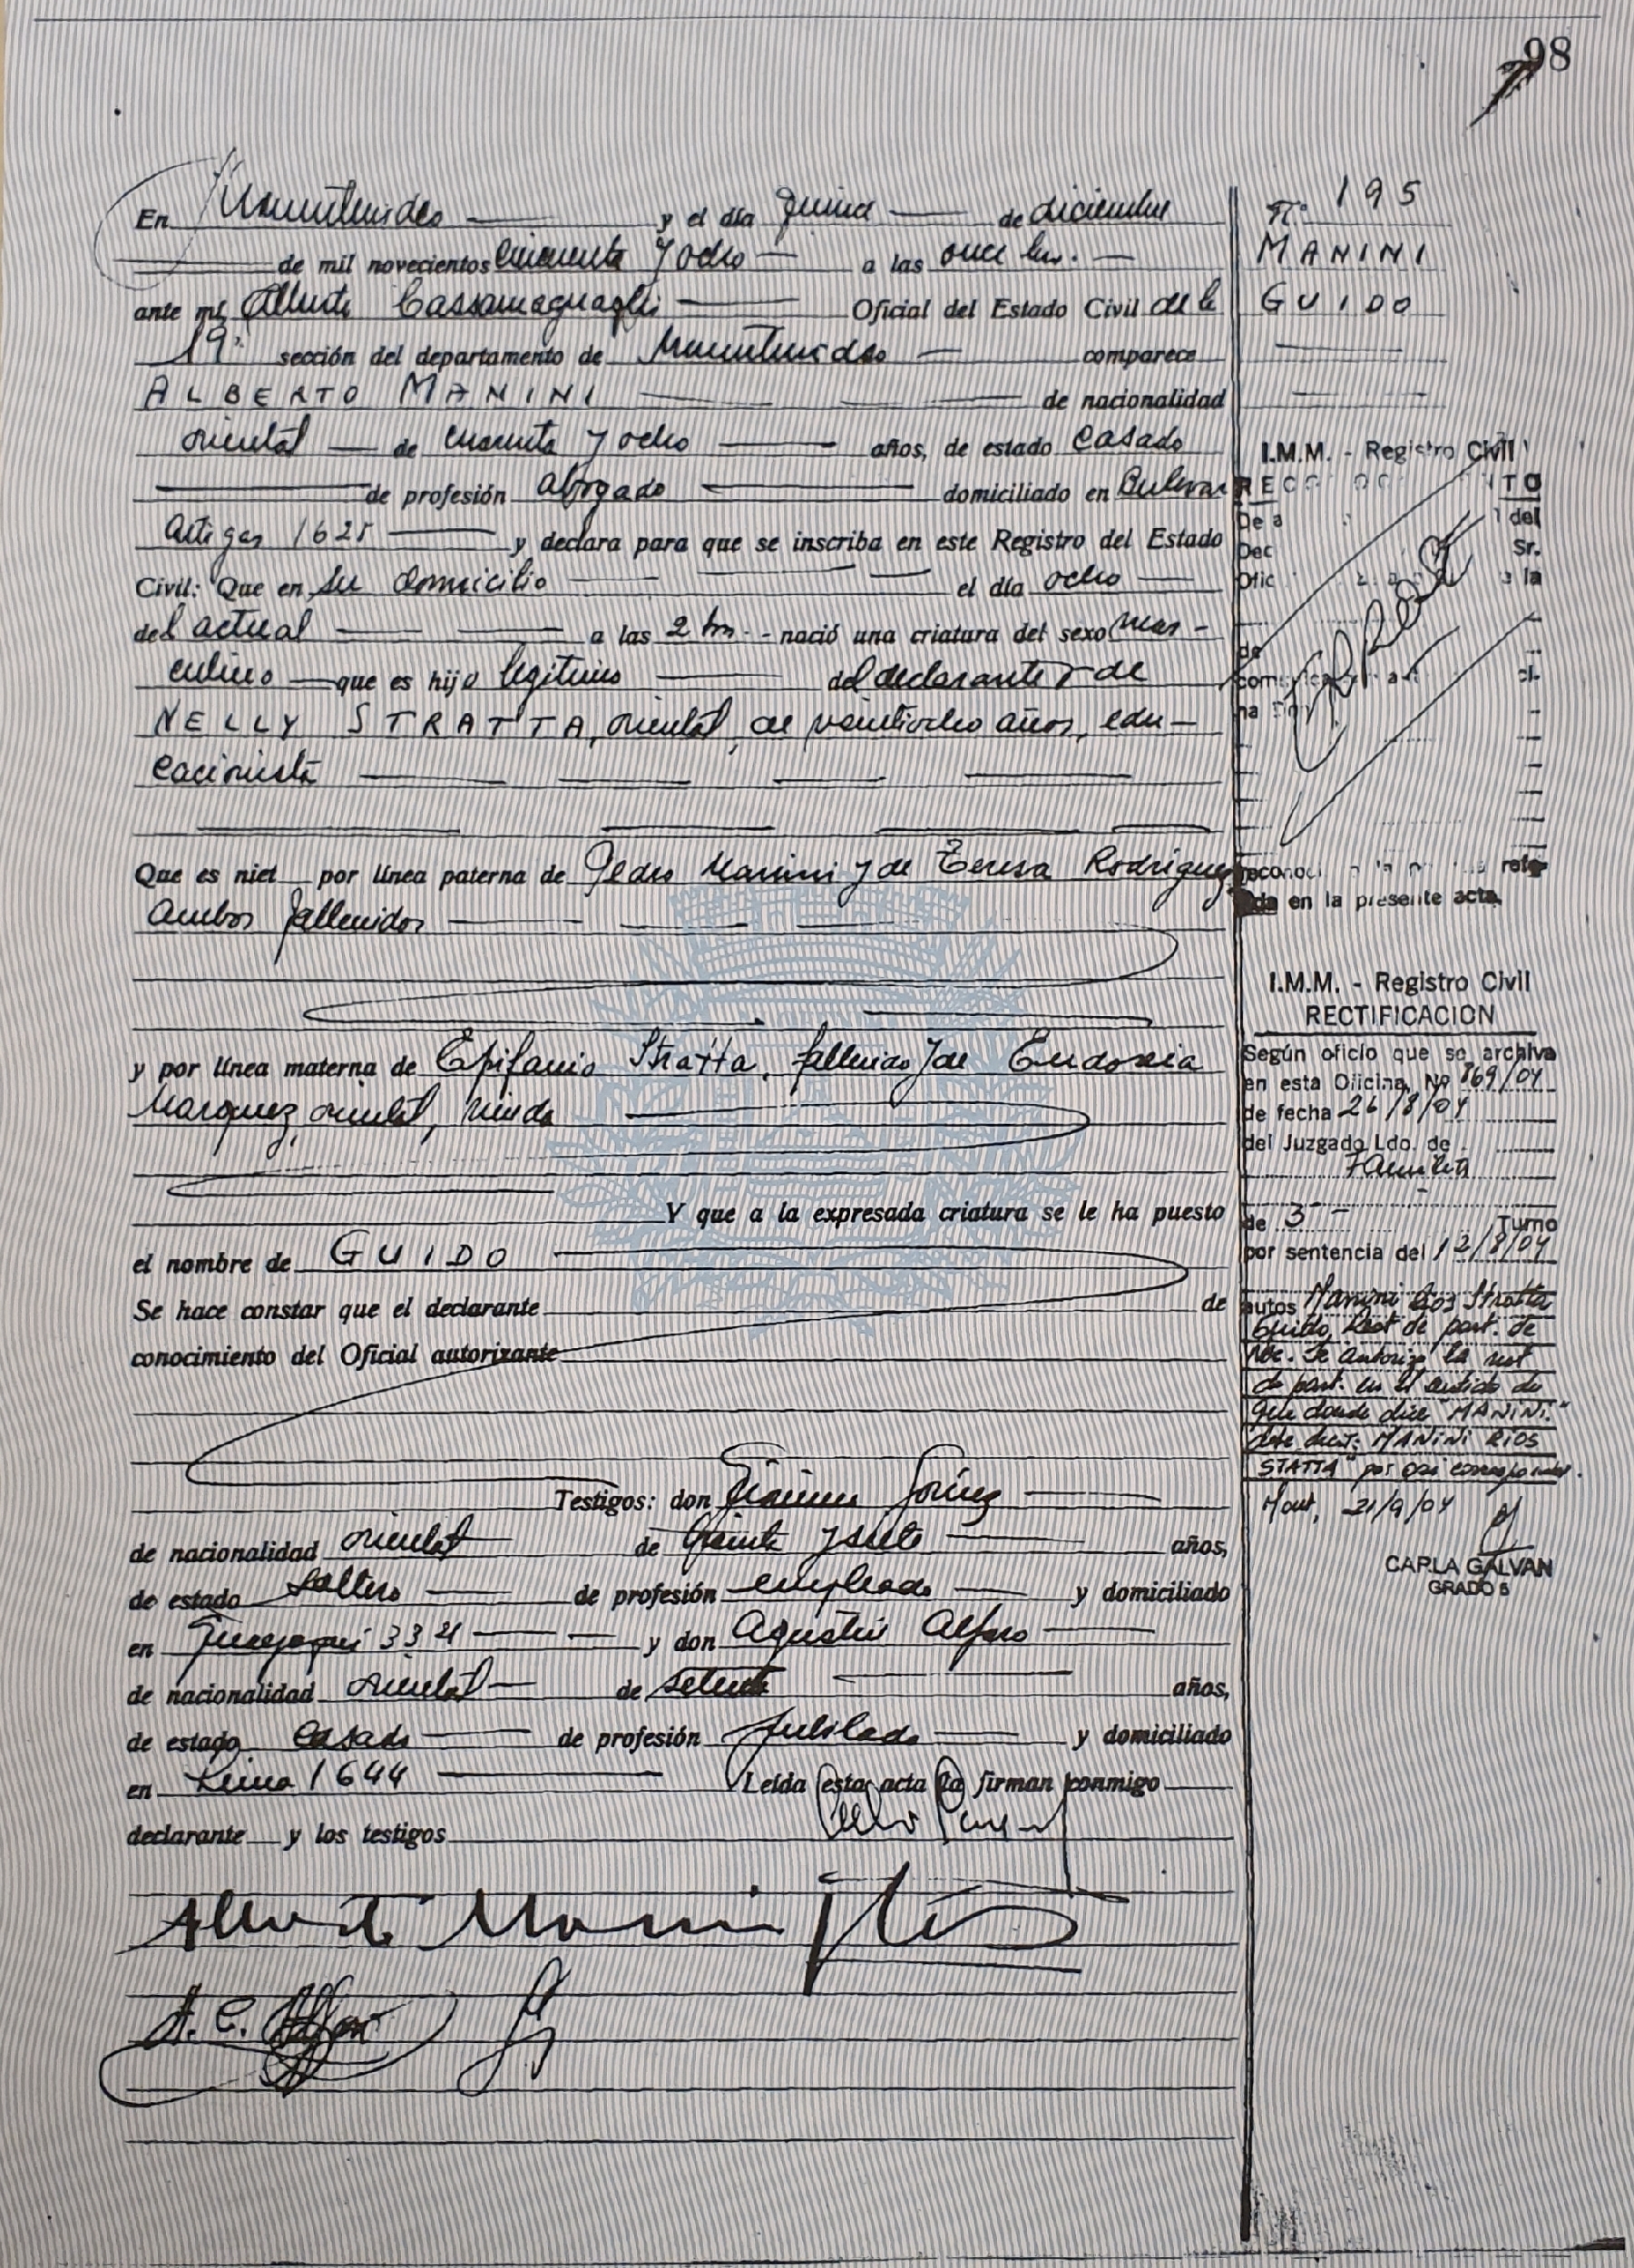 98
En Montevideo y el día quince de diciembre
de mil novecientos cincuenta y ocho a las once hs.
ante mí Oficial del Estado Civil de la
19ª sección del departamento de Montevideo comparece
ALBERTO MANINI de nacionalidad
oriental de cuarenta y ocho años, de estado casado
de profesión abogado domiciliado en Bulevar
Artigas 1625 y declara para que se inscriba en este Registro del Estado
Civil: Que en su domicilio el día ocho
del actual a las 2 hs. nació una criatura del sexo mas-
culino que es hijo legítimo del declarante y de
NELLY STRATTA, oriental, de veintiocho años, edu-
cacionista
Que es niet por línea paterna de Pedro Manini y de Teresa Rodríguez
ambos fallecidos
y por línea materna de Epifanio Stratta, fallecido y de Eudoxia
Marquez, oriental, viuda
Y que a la expresada criatura se le ha puesto
el nombre de GUIDO
Se hace constar que el declarante de
conocimiento del Oficial autorizante
Testigos: don
de nacionalidad oriental de treinta y siete años,
de estado soltero de profesión empleado y domiciliado
en 3321 y don Agustín Alfaro
de nacionalidad oriental de setenta años,
de estado casado de profesión jubilado y domiciliado
en 1644 Leída esta acta la firman conmigo
declarante y los testigos
Alberto Manini Ríos
A. E. Alfaro
Nº 195
MANINI
GUIDO
I.M.M. - Registro Civil
del
Sr.
la
en la presente acta.
I.M.M. - Registro Civil
RECTIFICACION
Según oficio que se archiva
en esta Oficina, Nº 869/04
de fecha 26/8/04
del Juzgado Ldo. de
Familia
de 3 Turno
por sentencia del 12/8/04
autos Manini Rios Stratta
Guido, Rect de part. de
Nac. Se autoriza la rect
de part. en el sentido de
que donde dice "MANINI."
debe decir: MANINI RIOS
STATTA" por así corresponder.
Mont, 21/9/04
CARLA GALVAN
GRADO 5